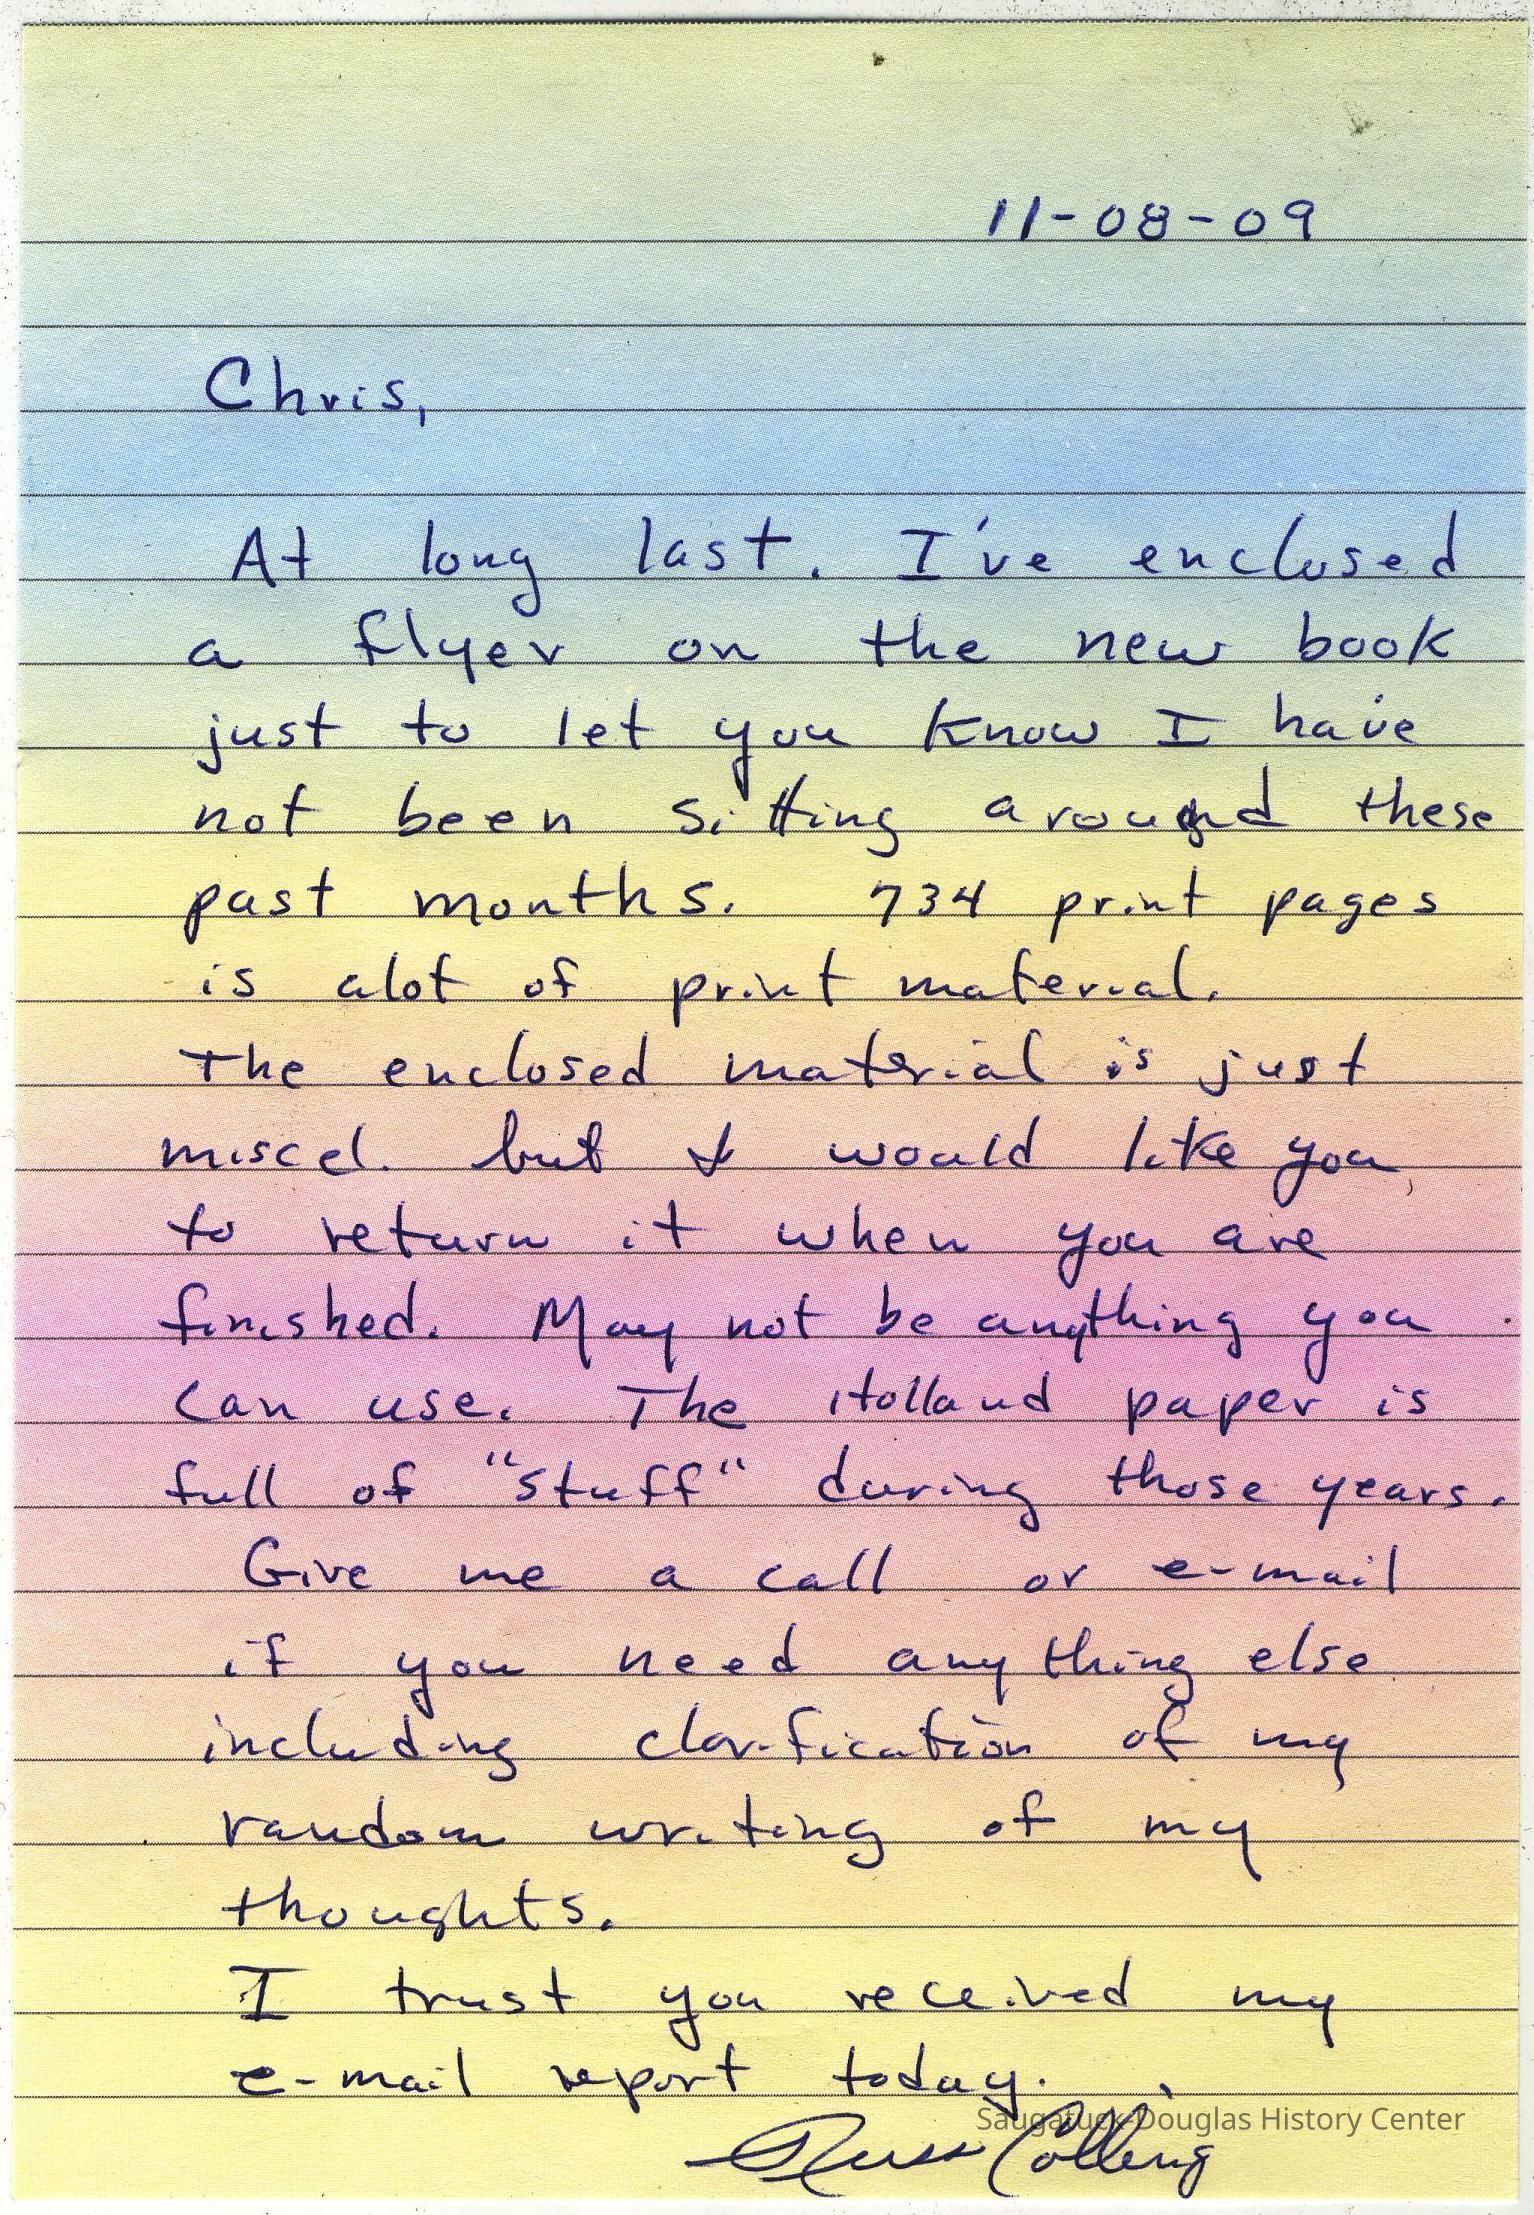 11-08-09
Chris,
At long last. I've enclosed
a flyer on the new book
just to let you know I have
not been sitting around these
past months. 734 print pages
is alot of print material.
The enclosed material is just
miscel. but I would like you
to return it when you are
finished. May not be anything you
can use. The Holland paper is
full of "stuff" during those years.
Give me a call or e-mail
if you need anything else
including clarification of my
random writing of my
thoughts.
I trust you received my
e-mail report today.
Saugatuck-Douglas History Center
Russ Colling